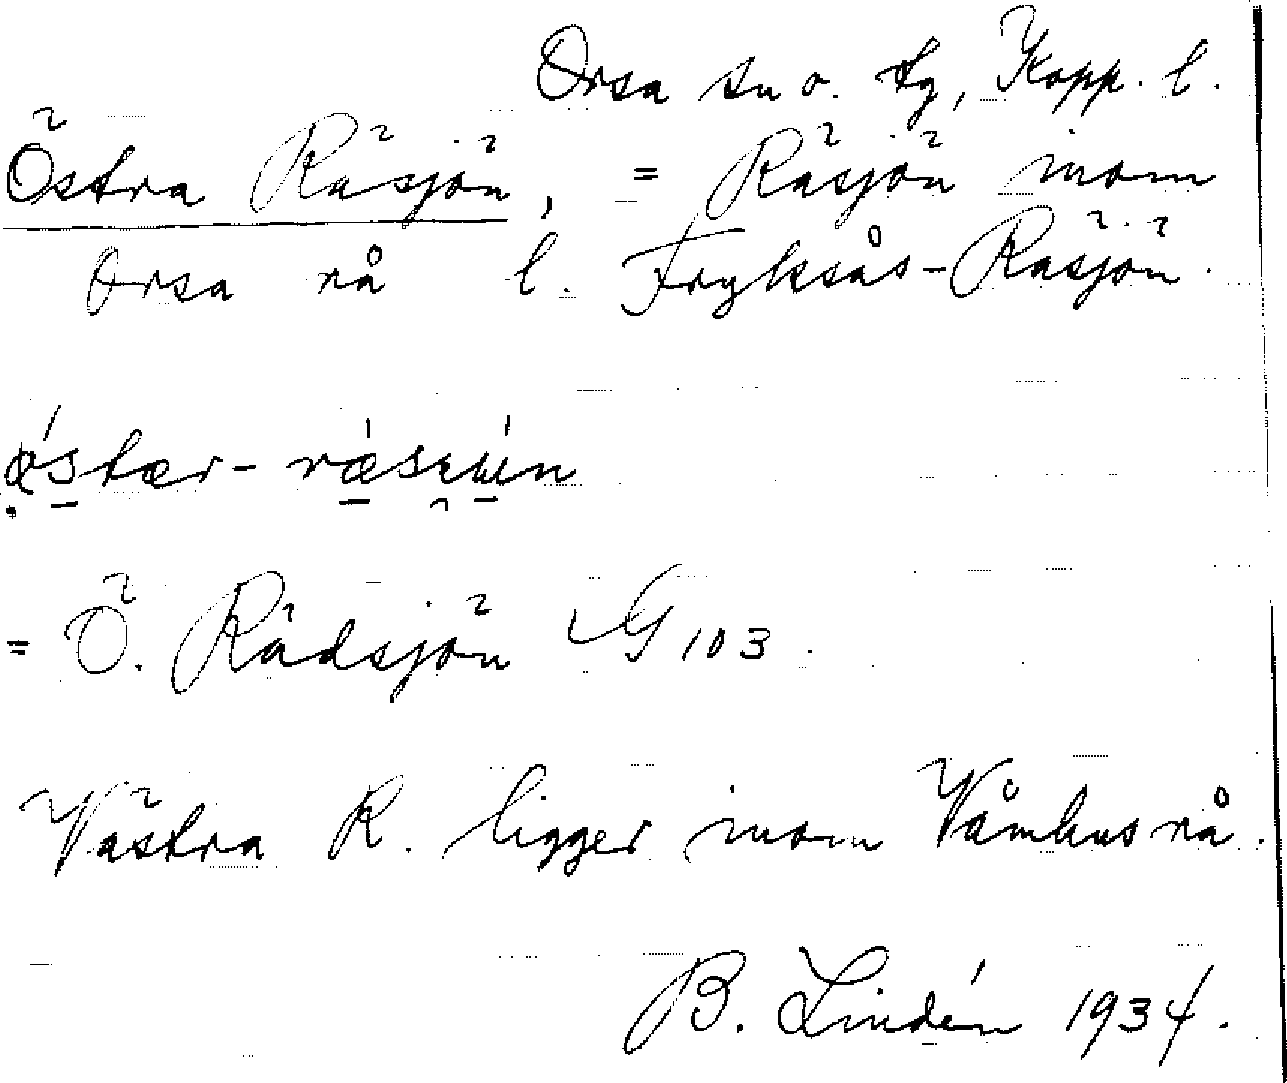 Orsa sn o. tg, Kopp. l.
Östra Räsjön, = Räsjön inom
Orsa rå l. Fryksås-Räsjön.
= Ö. Rädsjön G 103.
Västra R. ligger inom Våmhus rå.
B. Lindén 1934.